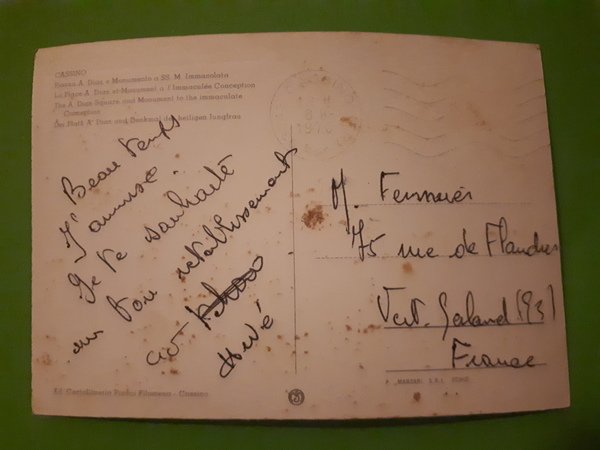 CASSINO
Piazza A. Diaz e Monumento a SS. M. Immacolata
La Place A. Diaz et Monument a l'Immaculée Conception
The A. Diaz Square and Monument to the immaculate
Conception
Der Platz A. Diaz und Denkmal der heiligen Jungfrau
1970
Beau temps
J'amuse.
Je te souhaite
un bon rétablissement
Hervé
M.
75 rue de Flandres
Vert-Galand (93)
France
Ed. Cartolibreria Pietro Filomeno - Cassino